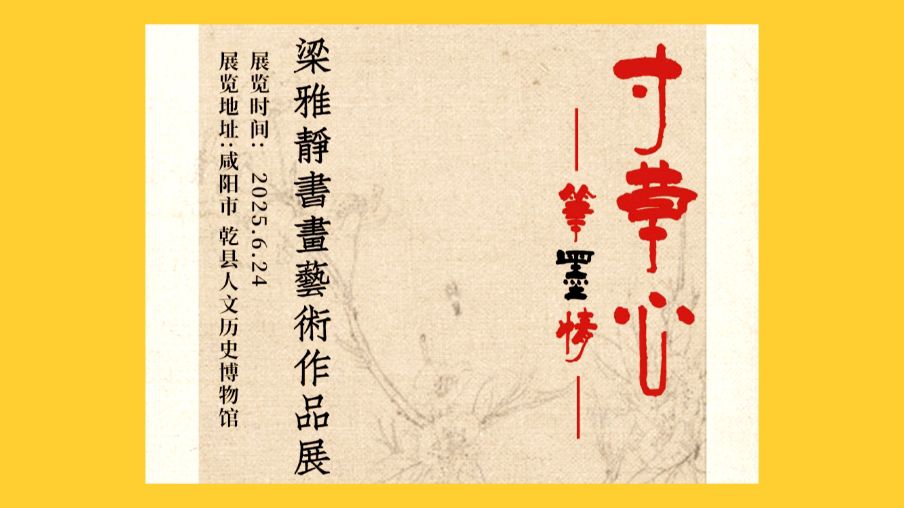 寸草心
笔墨情
梁雅靜書畫藝術作品展
展览时间：2025.6.24
展览地址：咸阳市 乾县人文历史博物馆